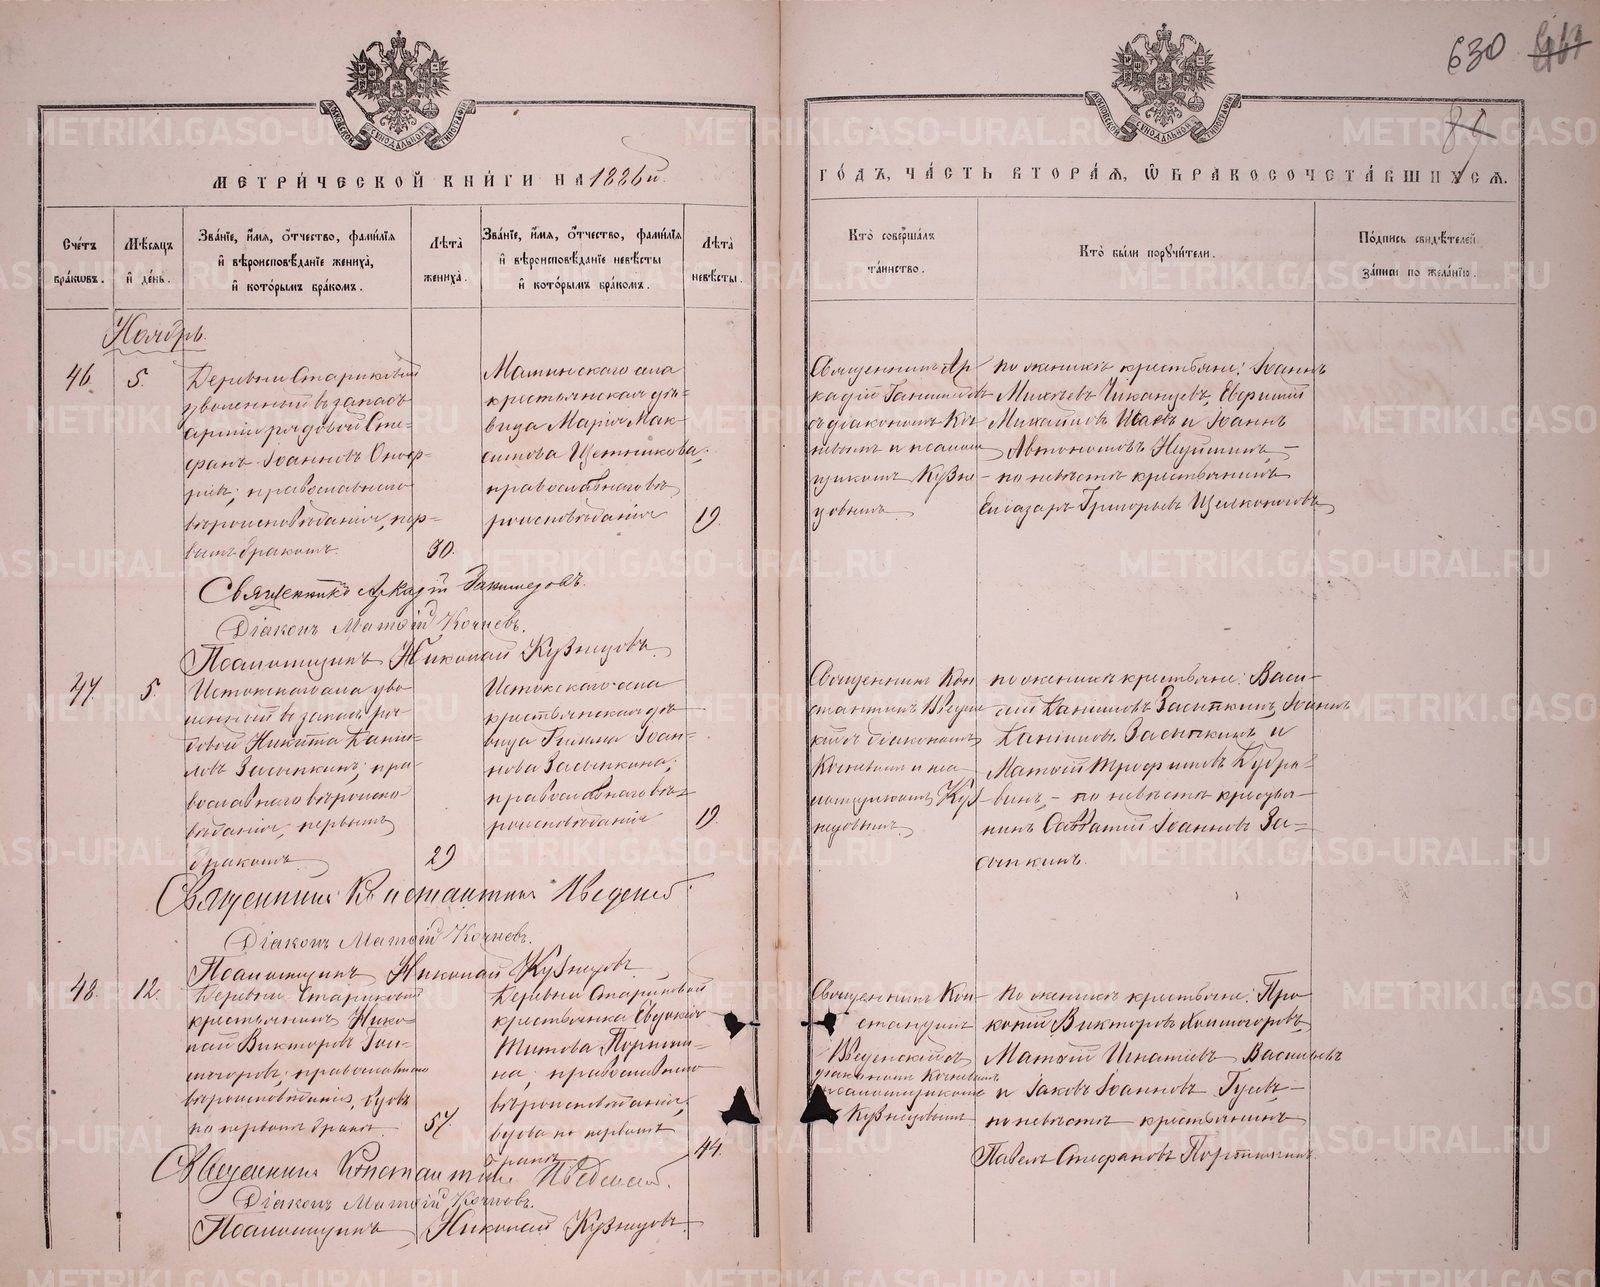 630
МЕТРИЧЕСКОЙ КНИГИ НА 1886й
ГОДЪ, ЧАСТЬ ВТОРАЯ, Ѿ БРАКОСОЧЕТАВШИХСЯ.
Счетъ браковъ.
Мѣсяцъ и день.
Званіе, имя, отчество, фамилія и вѣроисповѣданіе жениха, и которымъ бракомъ.
Лѣта жениха.
Званіе, имя, отчество, фамилія и вѣроисповѣданіе невѣсты и которымъ бракомъ.
Лѣта невѣсты.
Кто совершалъ таинство.
Кто были поручители.
Подпись свидѣтелей записи по желанію.
Ноябрь
46.
5.
Деревни Стариковой
уволенный въ запасъ
арміи рядовой Сте-
фанъ Іоанновъ Оноф-
ріевъ; православнаго
вѣроисповѣданія, пер-
вымъ бракомъ.
30.
Маминскаго села
крестьянская дѣ-
вица Марія Мак-
симова Щетникова;
православнаго вѣ-
роисповѣданія
19.
Священникъ Ар-
кадій
съ діакономъ Коч-
невымъ и псалом-
щикомъ Кузне-
цовымъ
по женихѣ крестьяне: Іоаннъ
Михѣевъ Чиканцевъ, Евфимій
Михайловъ Исаевъ и Іоаннъ
Автономовъ
по невѣстѣ крестьянинъ
Елеазаръ Григорьевъ Щелконоговъ
Священникъ Аркадій
Діаконъ Матѳій Кочневъ.
Псаломщикъ Николай Кузнецовъ.
47.
5.
Истокскаго села уво-
ленный въ запасъ ря-
довой Никита Дани-
ловъ Засыпкинъ; пра-
вославнаго вѣроиспо-
вѣданія, первымъ
бракомъ
29
Истокскаго села
крестьянская дѣ-
вица Іоан-
нова Засыпкина;
православнаго вѣ-
роисповѣданія
19.
Священникъ Кон-
стантинъ Введен-
скій съ діакономъ
Кочневымъ и пса-
ломщикомъ Куз-
нецовымъ.
по женихѣ крестьяне: Васи-
лій Даніиловъ Засыпкинъ, Іоаннъ
Даніиловъ Засыпкинъ и
Матѳій Трофимовъ Кудря-
винъ, - по невѣстѣ крестья-
нинъ Савватій Іоанновъ За-
сыпкинъ.
Священникъ Константинъ Введенскій
Діаконъ Матѳій Кочневъ.
Псаломщикъ Николай Кузнецовъ.
48.
12.
Деревни Стариковой
крестьянинъ Нико-
лай Викторовъ Хол-
могоровъ; православнаго
вѣроисповѣданія, вдовъ
по первомъ бракѣ.
57.
Деревни Стариковой
крестьянка Евдокія
Титова Портни-
на; православнаго
вѣроисповѣданія,
вдова по первомъ
бракѣ
44.
Священникъ Кон-
стантинъ
Введенскій съ
діакономъ Кочневымъ
псаломщикомъ
Кузнецовымъ
по женихѣ крестьяне: Про-
копій Викторовъ Холмогоровъ,
Матѳій Игнатіевъ Васильевъ
и Іаковъ Іоанновъ Гусевъ -
по невѣстѣ крестьянинъ
Павелъ Стефановъ Портнягинъ.
Священникъ Константинъ Введенскій.
Діаконъ Матѳій Кочневъ.
Псаломщикъ Николай Кузнецовъ.
METRIKI.GASO-URAL.RU